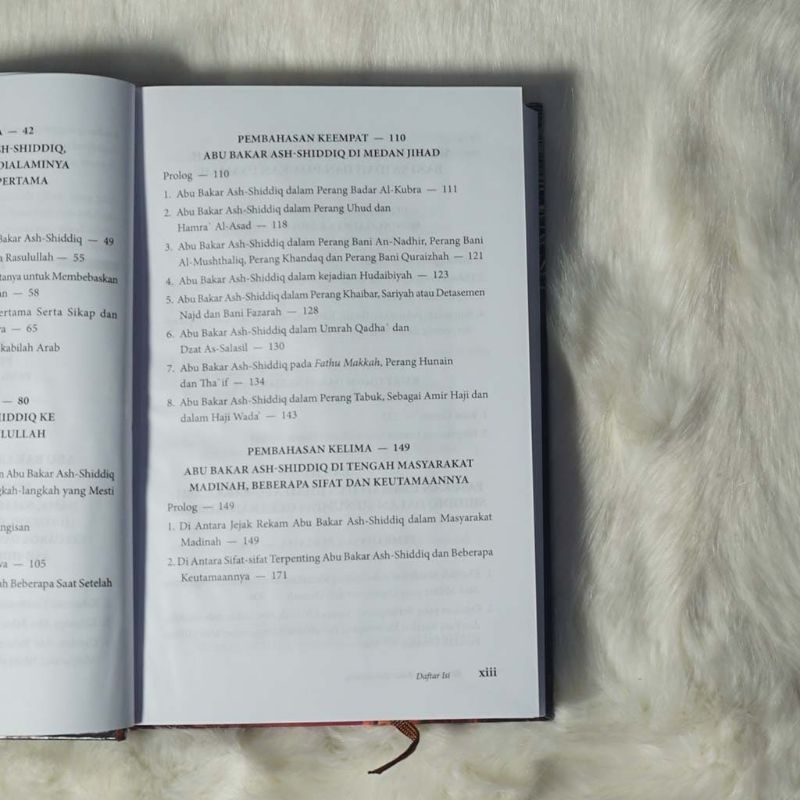 — 42
SH-SHIDDIQ,
DIALAMINYA
PERTAMA
Bakar Ash-Shiddiq — 49
Rasulullah — 55
tanya untuk Membebaskan
an — 58
ertama Serta Sikap dan
ya — 65
kabilah Arab
— 80
HIDDIQ KE
ULULLAH
n Abu Bakar Ash-Shiddiq
gkah-langkah yang Mesti
ngisan
wa — 105
ah Beberapa Saat Setelah
PEMBAHASAN KEEMPAT — 110
ABU BAKAR ASH-SHIDDIQ DI MEDAN JIHAD
Prolog — 110
1. Abu Bakar Ash-Shiddiq dalam Perang Badar Al-Kubra — 111
2. Abu Bakar Ash-Shiddiq dalam Perang Uhud dan
Hamra` Al-Asad — 118
3. Abu Bakar Ash-Shiddiq dalam Perang Bani An-Nadhir, Perang Bani
Al-Mushthaliq, Perang Khandaq dan Perang Bani Quraizhah — 121
4. Abu Bakar Ash-Shiddiq dalam kejadian Hudaibiyah — 123
5. Abu Bakar Ash-Shiddiq dalam Perang Khaibar, Sariyah atau Detasemen
Najd dan Bani Fazarah — 128
6. Abu Bakar Ash-Shiddiq dalam Umrah Qadha` dan
Dzat As-Salasil — 130
7. Abu Bakar Ash-Shiddiq pada Fathu Makkah, Perang Hunain
dan Tha`if — 134
8. Abu Bakar Ash-Shiddiq dalam Perang Tabuk, Sebagai Amir Haji dan
dalam Haji Wada` — 143
PEMBAHASAN KELIMA — 149
ABU BAKAR ASH-SHIDDIQ DI TENGAH MASYARAKAT
MADINAH, BEBERAPA SIFAT DAN KEUTAMAANNYA
Prolog — 149
1. Di Antara Jejak Rekam Abu Bakar Ash-Shiddiq dalam Masyarakat
Madinah — 149
2. Di Antara Sifat-sifat Terpenting Abu Bakar Ash-Shiddiq dan Beberapa
Keutamaannya — 171
Daftar Isi xiii